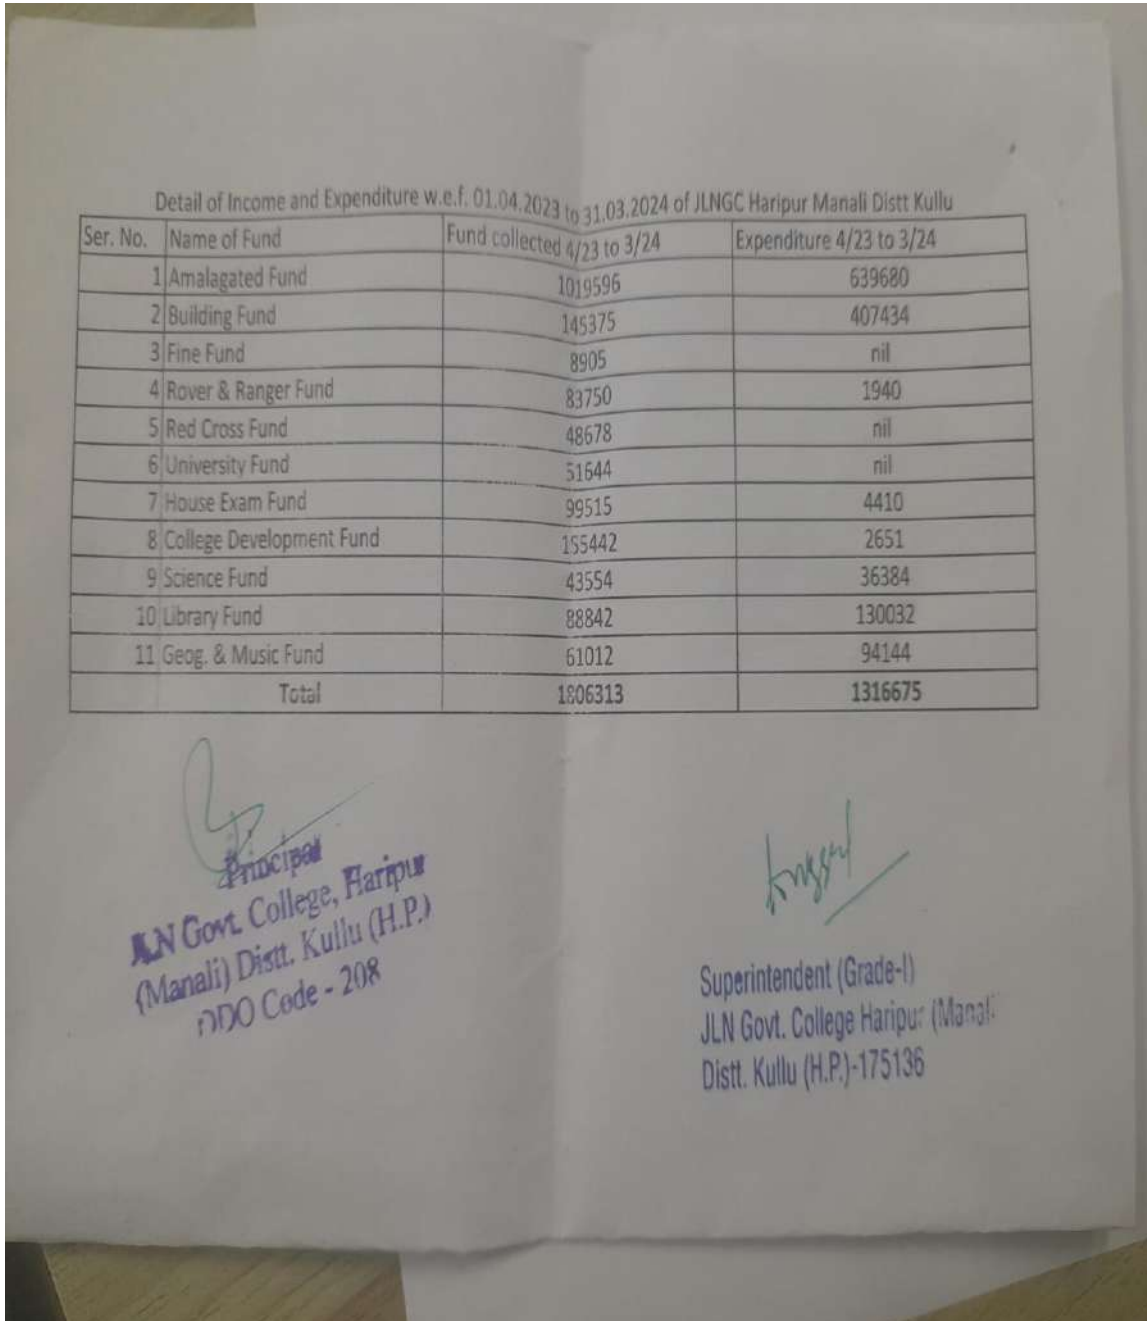 Detail of Income and Expenditure w.e.f. 01.04.2023 to 31.03.2024 of JLNGC Haripur Manali Distt Kullu
Ser. No. Name of Fund Fund collected 4/23 to 3/24 Expenditure 4/23 to 3/24
1 Amalagated Fund 1019596 639680
2 Building Fund 145375 407434
3 Fine Fund 8905 nil
4 Rover & Ranger Fund 83750 1940
5 Red Cross Fund 48678 nil
6 University Fund 51644 nil
7 House Exam Fund 99515 4410
8 College Development Fund 155442 2651
9 Science Fund 43554 36384
10 Library Fund 88842 130032
11 Geog. & Music Fund 61012 94144
Total 1806313 1316675
Principal
JLN Govt. College, Haripur
(Manali) Distt. Kullu (H.P.)
DDO Code - 208
Superintendent (Grade-I)
JLN Govt. College Haripur (Manali
Distt. Kullu (H.P.)-175136